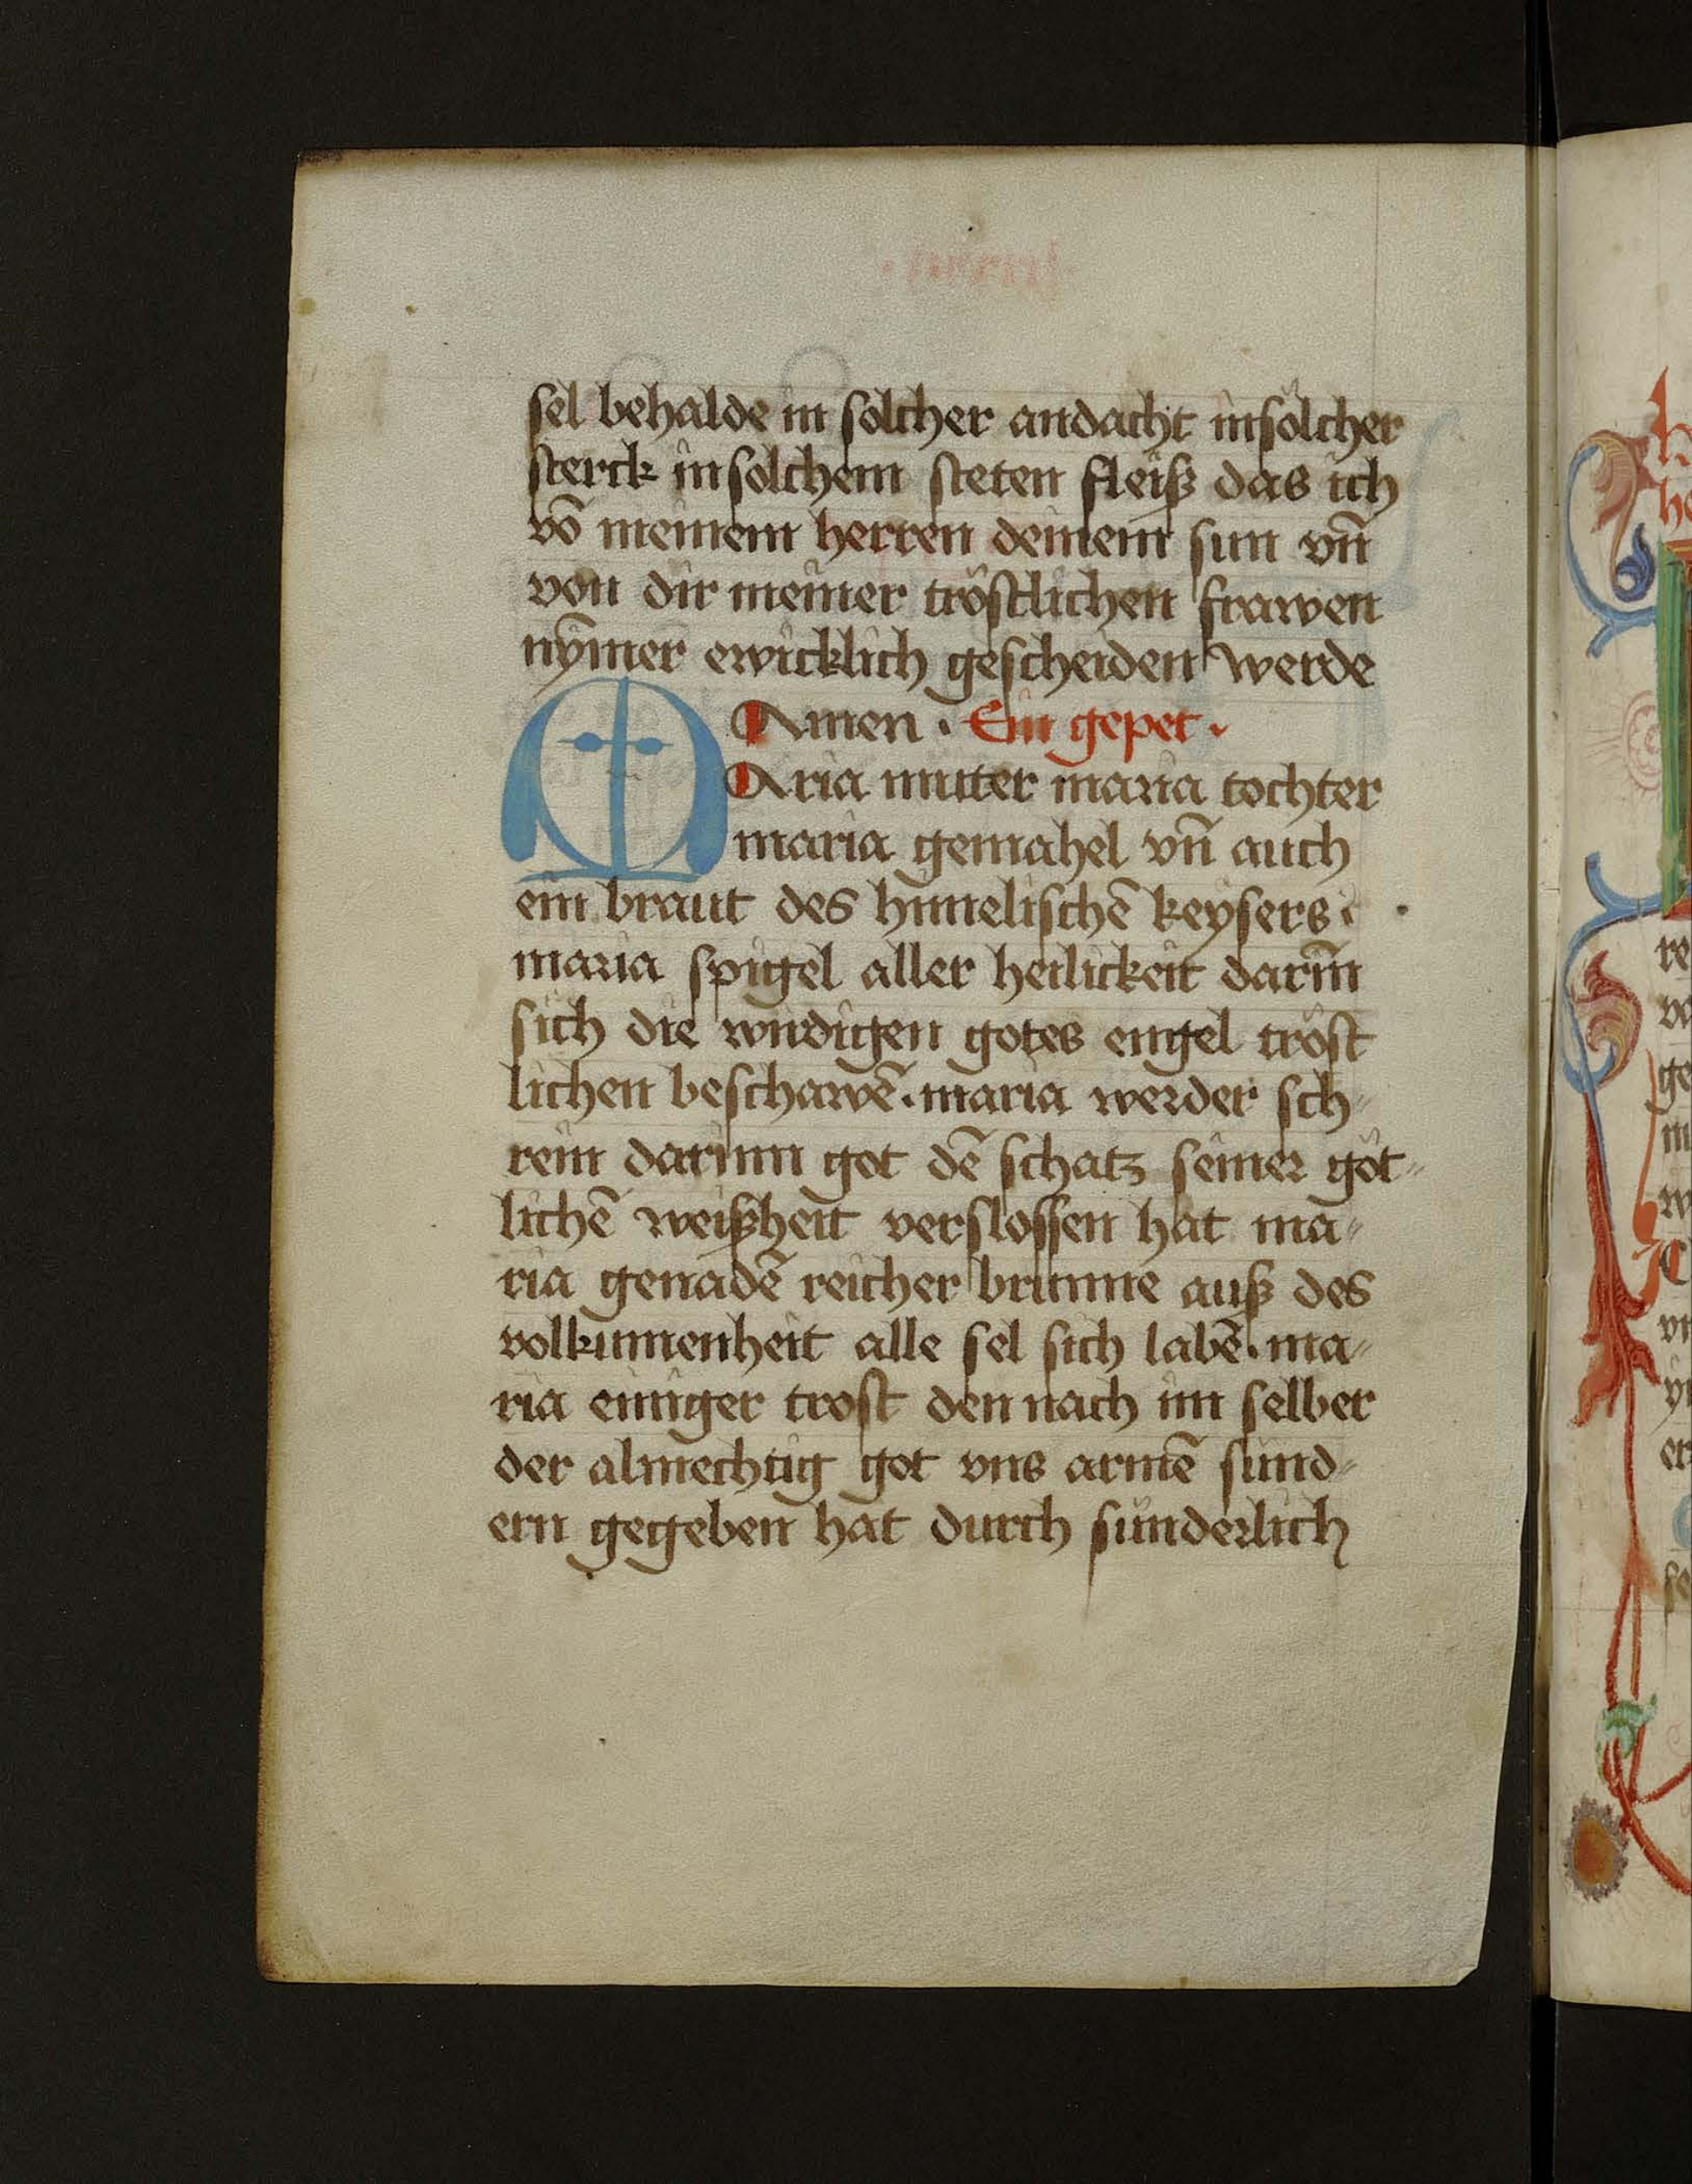 sel behalde in solcher andacht in sölcher
sterck in solchem steten fleiß das ich
võ meinem herren deinem sun vñ
von dir meiner tröstlichen frawen
nÿmer ewicklich gescheiden werde
Amen · Ein gepet ·
MAria muter maria tochter
maria gemahel vñ auch
ein braut des himelischẽ keysers ·
maria spigel aller heilickeit darīn
sich die wirdigen gotes engel tröst
lichen beschawẽ · maria werder sch-
rein darinn got dẽ schatz seiner göt-
lichẽ weißheit verslossen hat ma-
ria genadẽ reicher brunne auß des
volkumenheit alle sel sich labẽ · ma-
ria einiger trost den nach im selber
der almechtig got vns armẽ sünd-
ern gegeben hat durch sünderlich